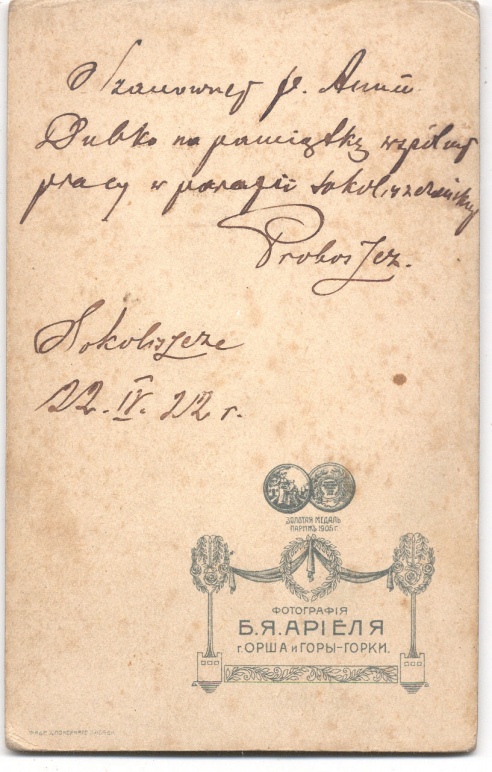 Szanownej p. Annie
Dubko na pamiątkę wspólnej
pracy w parafii sokoliszczańskiej
Proboszcz.
Sokoliszcze
22. IV. 212 r.
ЗОЛОТАЯ МЕДАЛЬ
ПАРИЖЪ 1905 г
ФОТОГРАФІЯ
Б.Я.АРІЕЛЯ
г. ОРША и ГОРЫ-ГОРКИ.